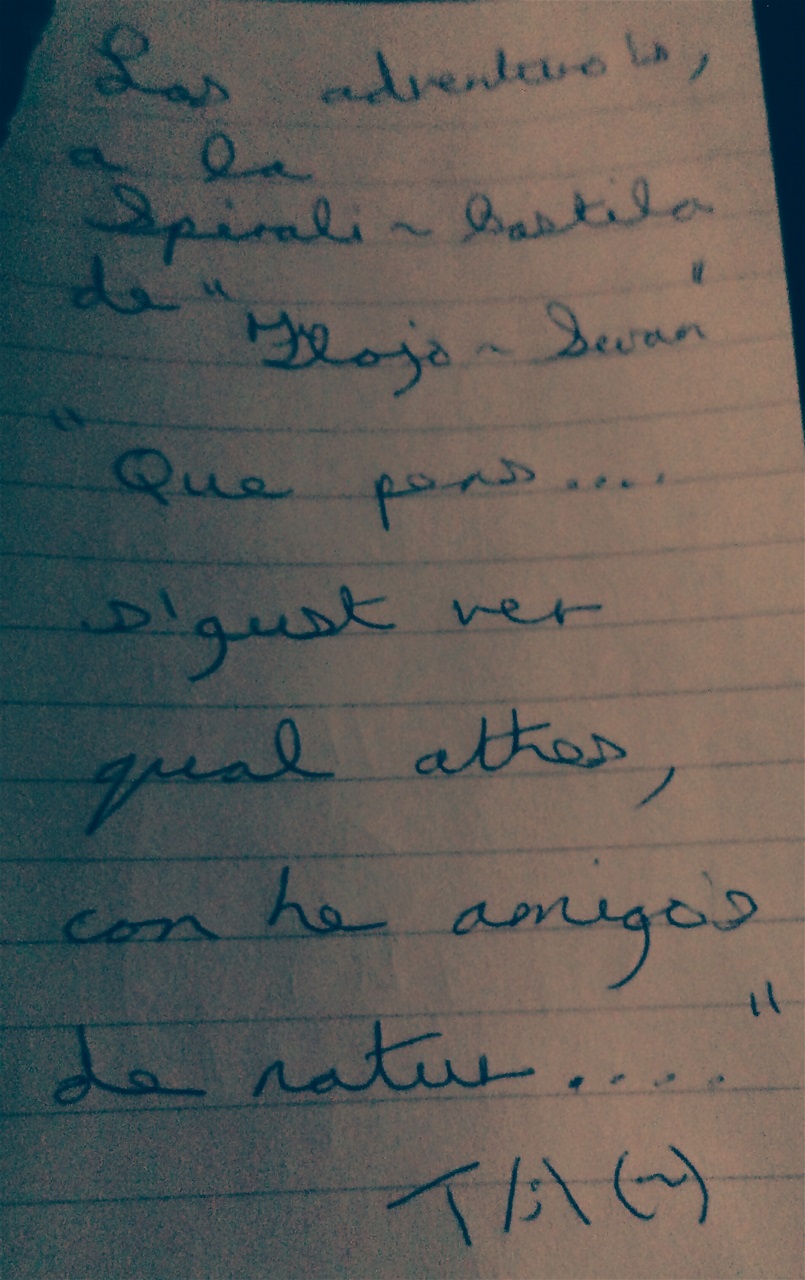 Las adventuro's,
a la
Spirali ~ Bastila
de "
Flojo ~ Sevan"
"Que pans....
s'gust ver
qual athos,
con he amigo's
de natur...."